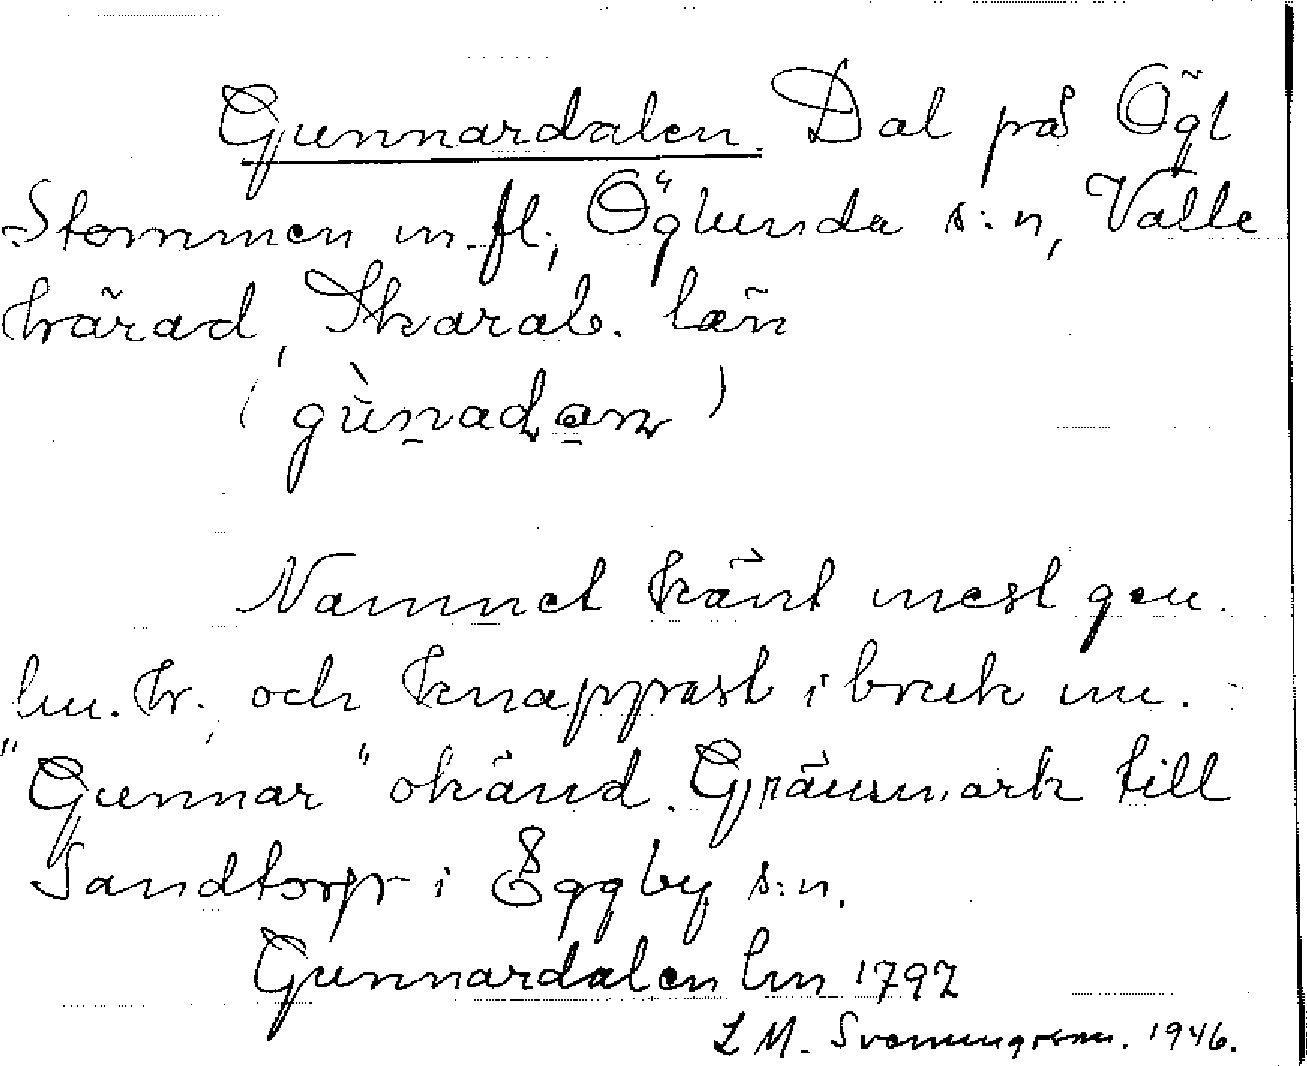 Gunnardalen. Dal på Ögl
Stommen m. fl., Öglunda s:n, Valle
härad, Skarab. län
( gùnadan )
Namnet känt mest gen.
lm. kr., och knappast i bruk nu.
"Gunnar" okänd. Gränsmark till
Sandtorp i Eggby s:n.
Gunnardalen lm 1797
L M. Svenungsson. 1946.